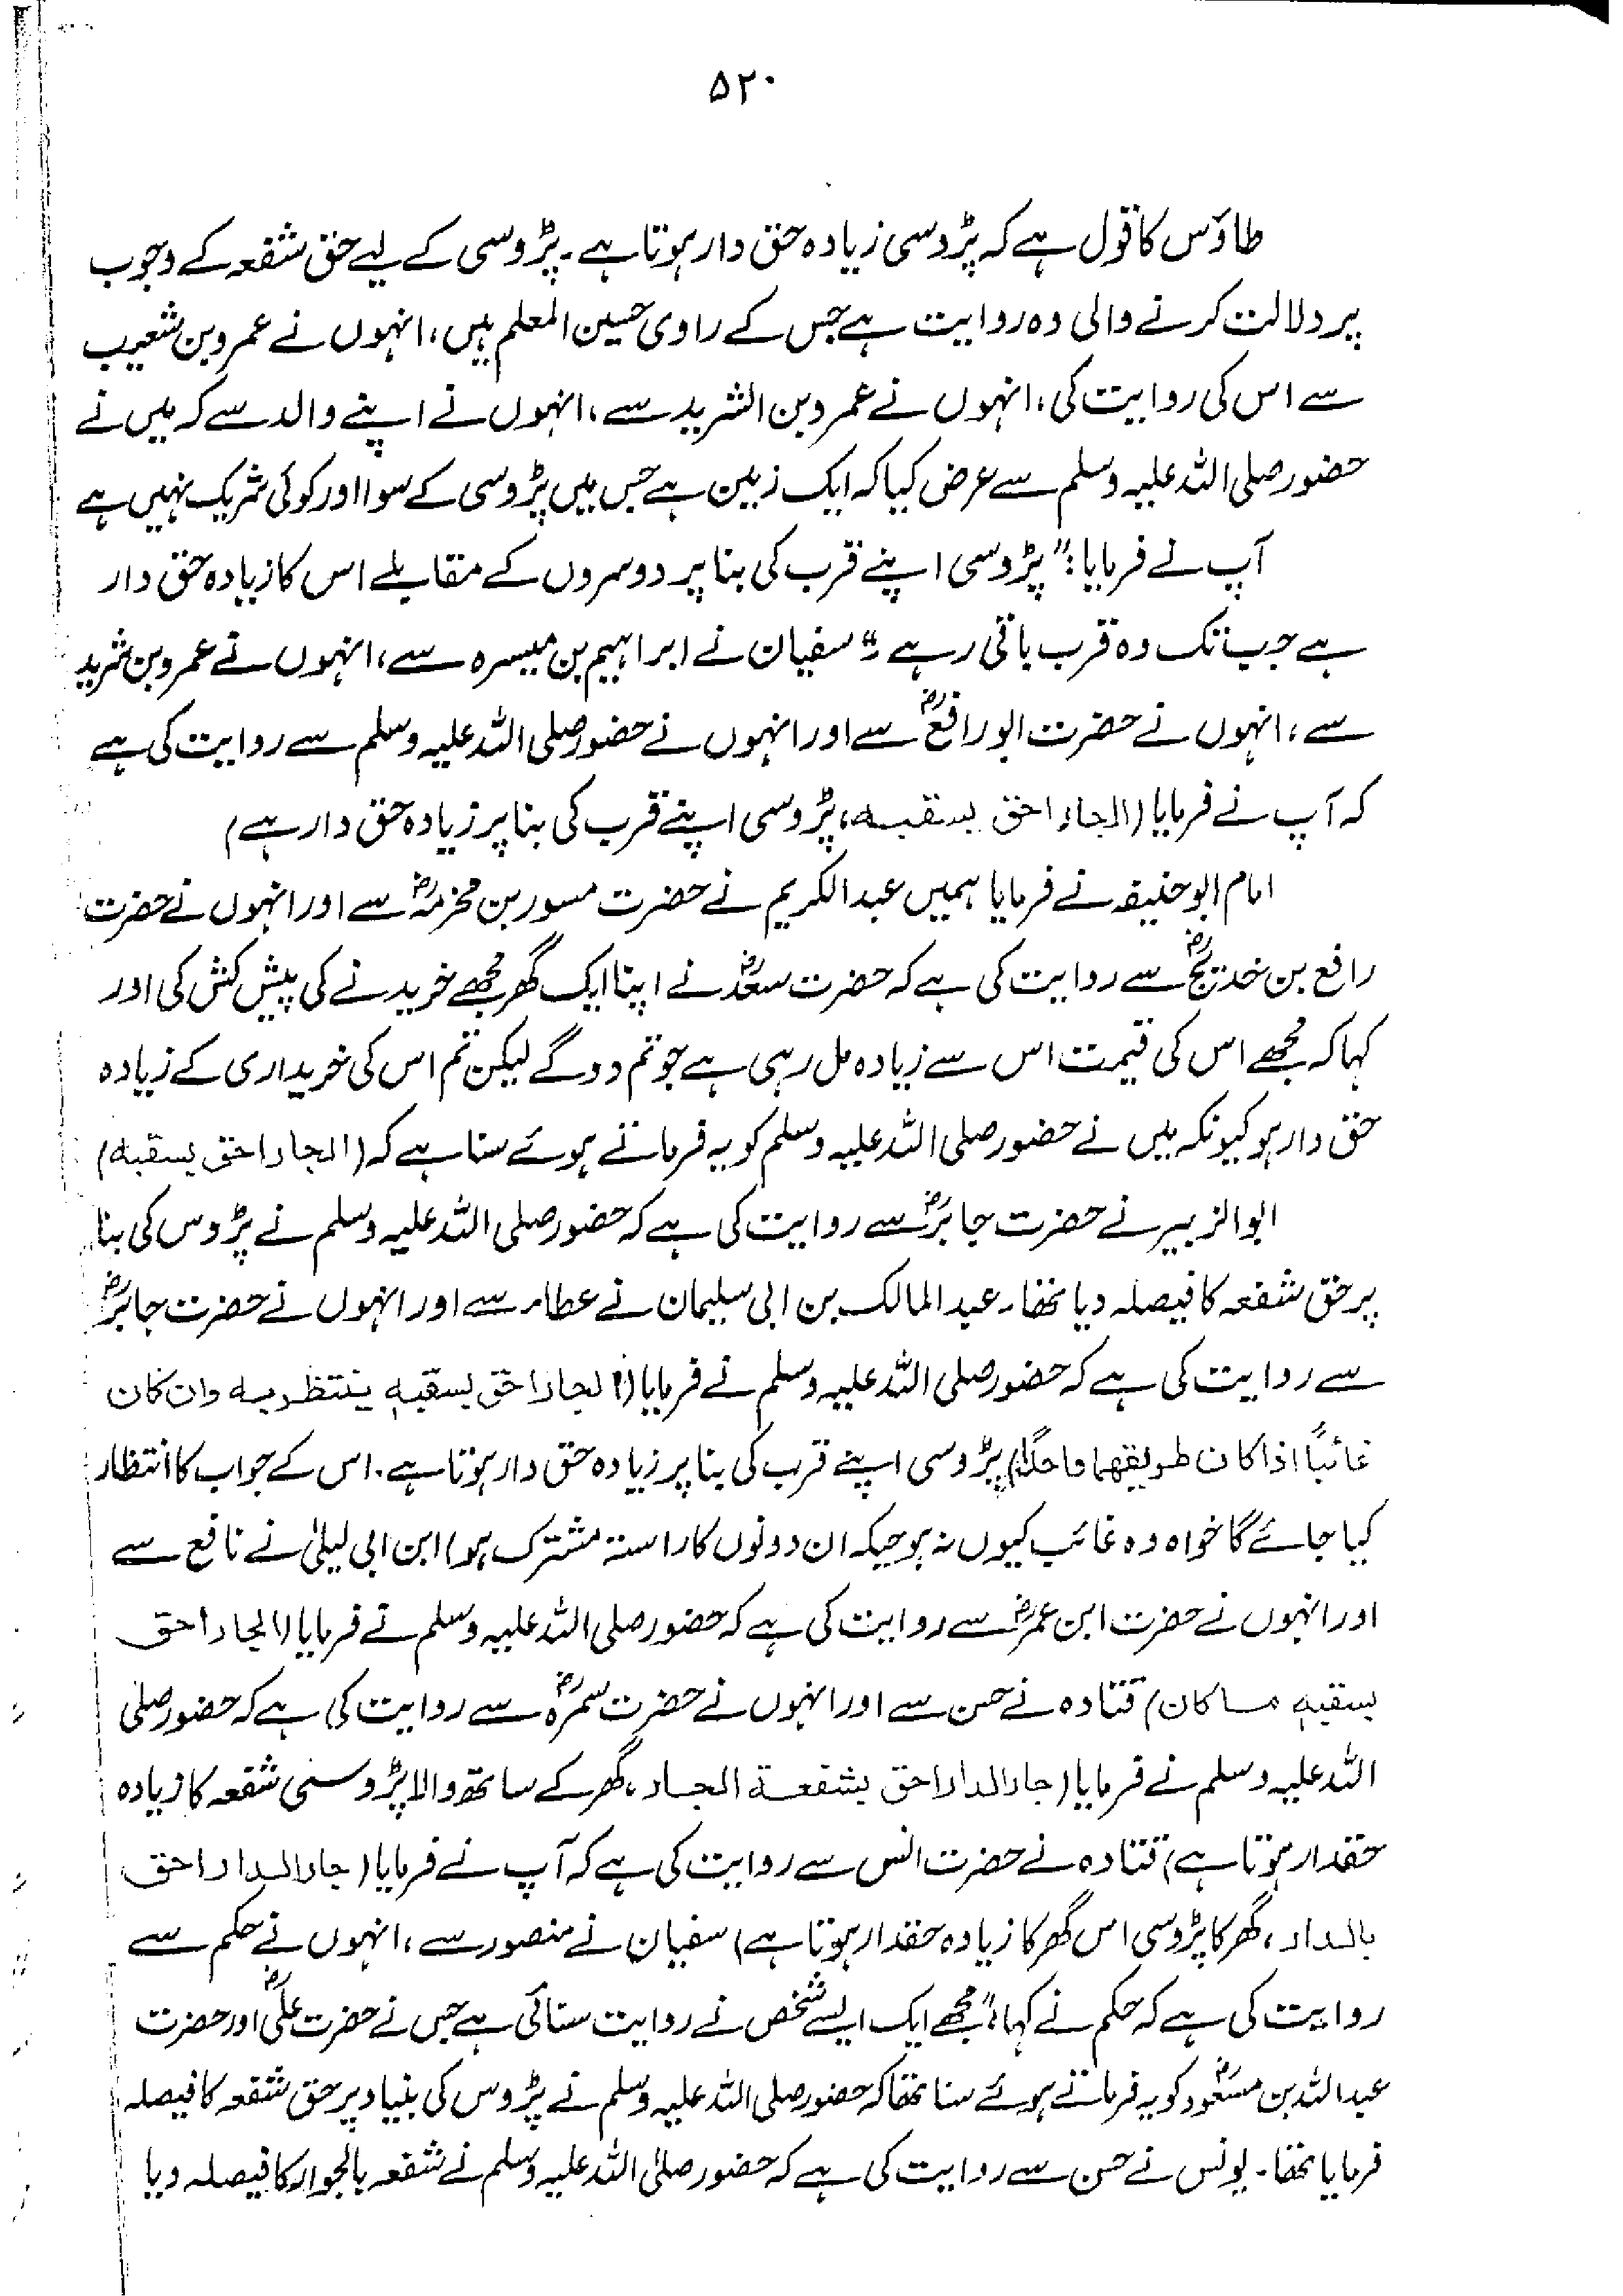 ۵۲۰
طاؤس کا قول ہے کہ پڑوسی زیادہ حق دار ہوتا ہے۔ پڑوسی کے لیے حق شفعہ کے وجوب
پر دلالت کرنے والی وہ روایت ہے جس کے راوی حسین المعلم ہیں، انہوں نے عمرو بن شعیب
سے اس کی روایت کی، انہوں نے عمرو بن الشرید سے، انہوں نے اپنے والد سے کہ میں نے
حضور صلی اللہ علیہ وسلم سے عرض کیا کہ ایک زمین ہے جس میں پڑوسی کے سوا اور کوئی شریک نہیں ہے
آپ نے فرمایا: "پڑوسی اپنے قرب کی بنا پر دوسروں کے مقابلے اس کا زیادہ حق دار
ہے جب تک وہ قرب باقی رہے"۔ سفیان نے ابراہیم بن میسرہ سے، انہوں نے عمرو بن شرید
سے، انہوں نے حضرت ابو رافعؓ سے اور انہوں نے حضور صلی اللہ علیہ وسلم سے روایت کی ہے
کہ آپ نے فرمایا (الجار احق بسقبہ، پڑوسی اپنے قرب کی بنا پر زیادہ حق دار ہے)
امام ابو حنیفہ نے فرمایا ہمیں عبدالکریم نے حضرت مسور بن مخرمہؓ سے اور انہوں نے حضرت
رافع بن خدیجؓ سے روایت کی ہے کہ حضرت سعدؓ نے اپنا ایک گھر مجھے خریدنے کی پیش کش کی اور
کہا کہ مجھے اس کی قیمت اس سے زیادہ مل رہی ہے جو تم دوگے لیکن تم اس کی خریداری کے زیادہ
حق دار ہو کیونکہ میں نے حضور صلی اللہ علیہ وسلم کو یہ فرماتے ہوئے سنا ہے کہ (الجار احق بسقبہ)
ابوالزبیر نے حضرت جابرؓ سے روایت کی ہے کہ حضور صلی اللہ علیہ وسلم نے پڑوس کی بنا
پر حق شفعہ کا فیصلہ دیا تھا۔ عبدالمالک بن ابی سلیمان نے عطاء سے اور انہوں نے حضرت جابرؓ
سے روایت کی ہے کہ حضور صلی اللہ علیہ وسلم نے فرمایا (الجار احق بسقبہ ینتظر بہ وان کان
غائبًا اذا کان طریقھما واحدًا) پڑوسی اپنے قرب کی بنا پر زیادہ حق دار ہوتا ہے۔ اس کے جواب کا انتظار
کیا جائے گا خواہ وہ غائب کیوں نہ ہو جبکہ ان دونوں کا راستہ مشترک ہو) ابن ابی لیلیٰ نے نافع سے
اور انہوں نے حضرت ابن عمرؓ سے روایت کی ہے کہ حضور صلی اللہ علیہ وسلم نے فرمایا (الجار احق
بسقبہ ما کان) قتادہ نے حسن سے اور انہوں نے حضرت سمرہؓ سے روایت کی ہے کہ حضور صلی
اللہ علیہ وسلم نے فرمایا (جار الدار احق بشفعۃ الجار، گھر کے ساتھ والا پڑوسی شفعہ کا زیادہ
حقدار ہوتا ہے) قتادہ نے حضرت انس سے روایت کی ہے کہ آپ نے فرمایا (جار الدار احق
بالدار، گھر کا پڑوسی اس گھر کا زیادہ حقدار ہوتا ہے) سفیان نے منصور سے، انہوں نے حکم سے
روایت کی ہے کہ حکم نے کہا: "مجھے ایک ایسے شخص نے روایت سنائی ہے جس نے حضرت علیؓ اور حضرت
عبداللہ بن مسعودؓ کو یہ فرماتے ہوئے سنا تھا کہ حضور صلی اللہ علیہ وسلم نے پڑوس کی بنیاد پر حق شفعہ کا فیصلہ
فرمایا تھا۔ یونس نے حسن سے روایت کی ہے کہ حضور صلی اللہ علیہ وسلم نے شفعہ بالجوار کا فیصلہ دیا